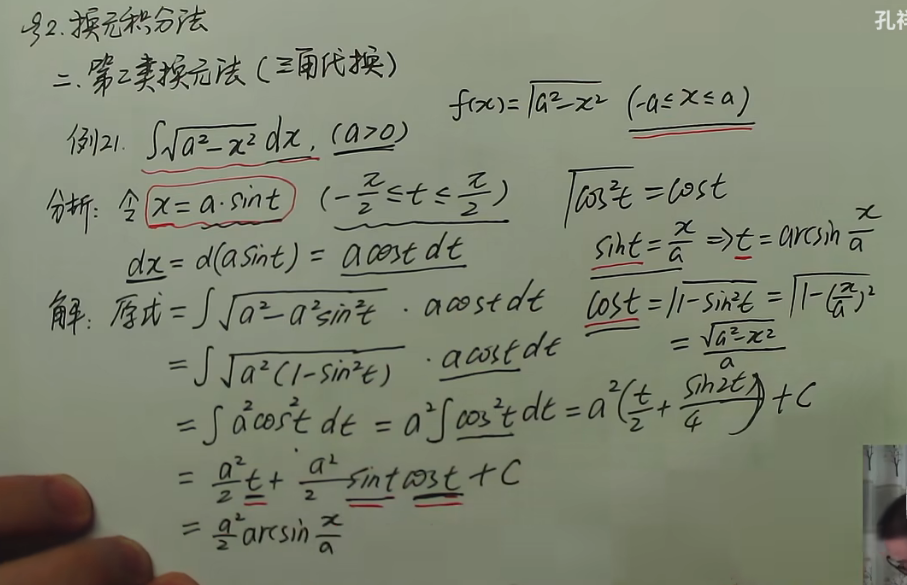 §2. 换元积分法
孔祥
二. 第二类换元法 (三角代换)
f(x) = √(a²-x²) (-a≤x≤a)
例21. ∫√(a²-x²) dx, (a>0)
分析: 令 x = a·sint (-π/2 ≤ t ≤ π/2)
√(cos²t) = cost
dx = d(asint) = acost dt
sint = x/a ⇒ t = arcsin x/a
解: 原式 = ∫√(a²-a²sin²t) · acost dt
cost = √(1-sin²t) = √(1-(x/a)²)
= √(a²-x²)/a
= ∫√(a²(1-sin²t)) · acost dt
= ∫a²cos²t dt = a²∫cos²t dt = a²(t/2 + sin2t/4) + C
= a²/2 t + a²/2 sint cost + C
= a²/2 arcsin x/a